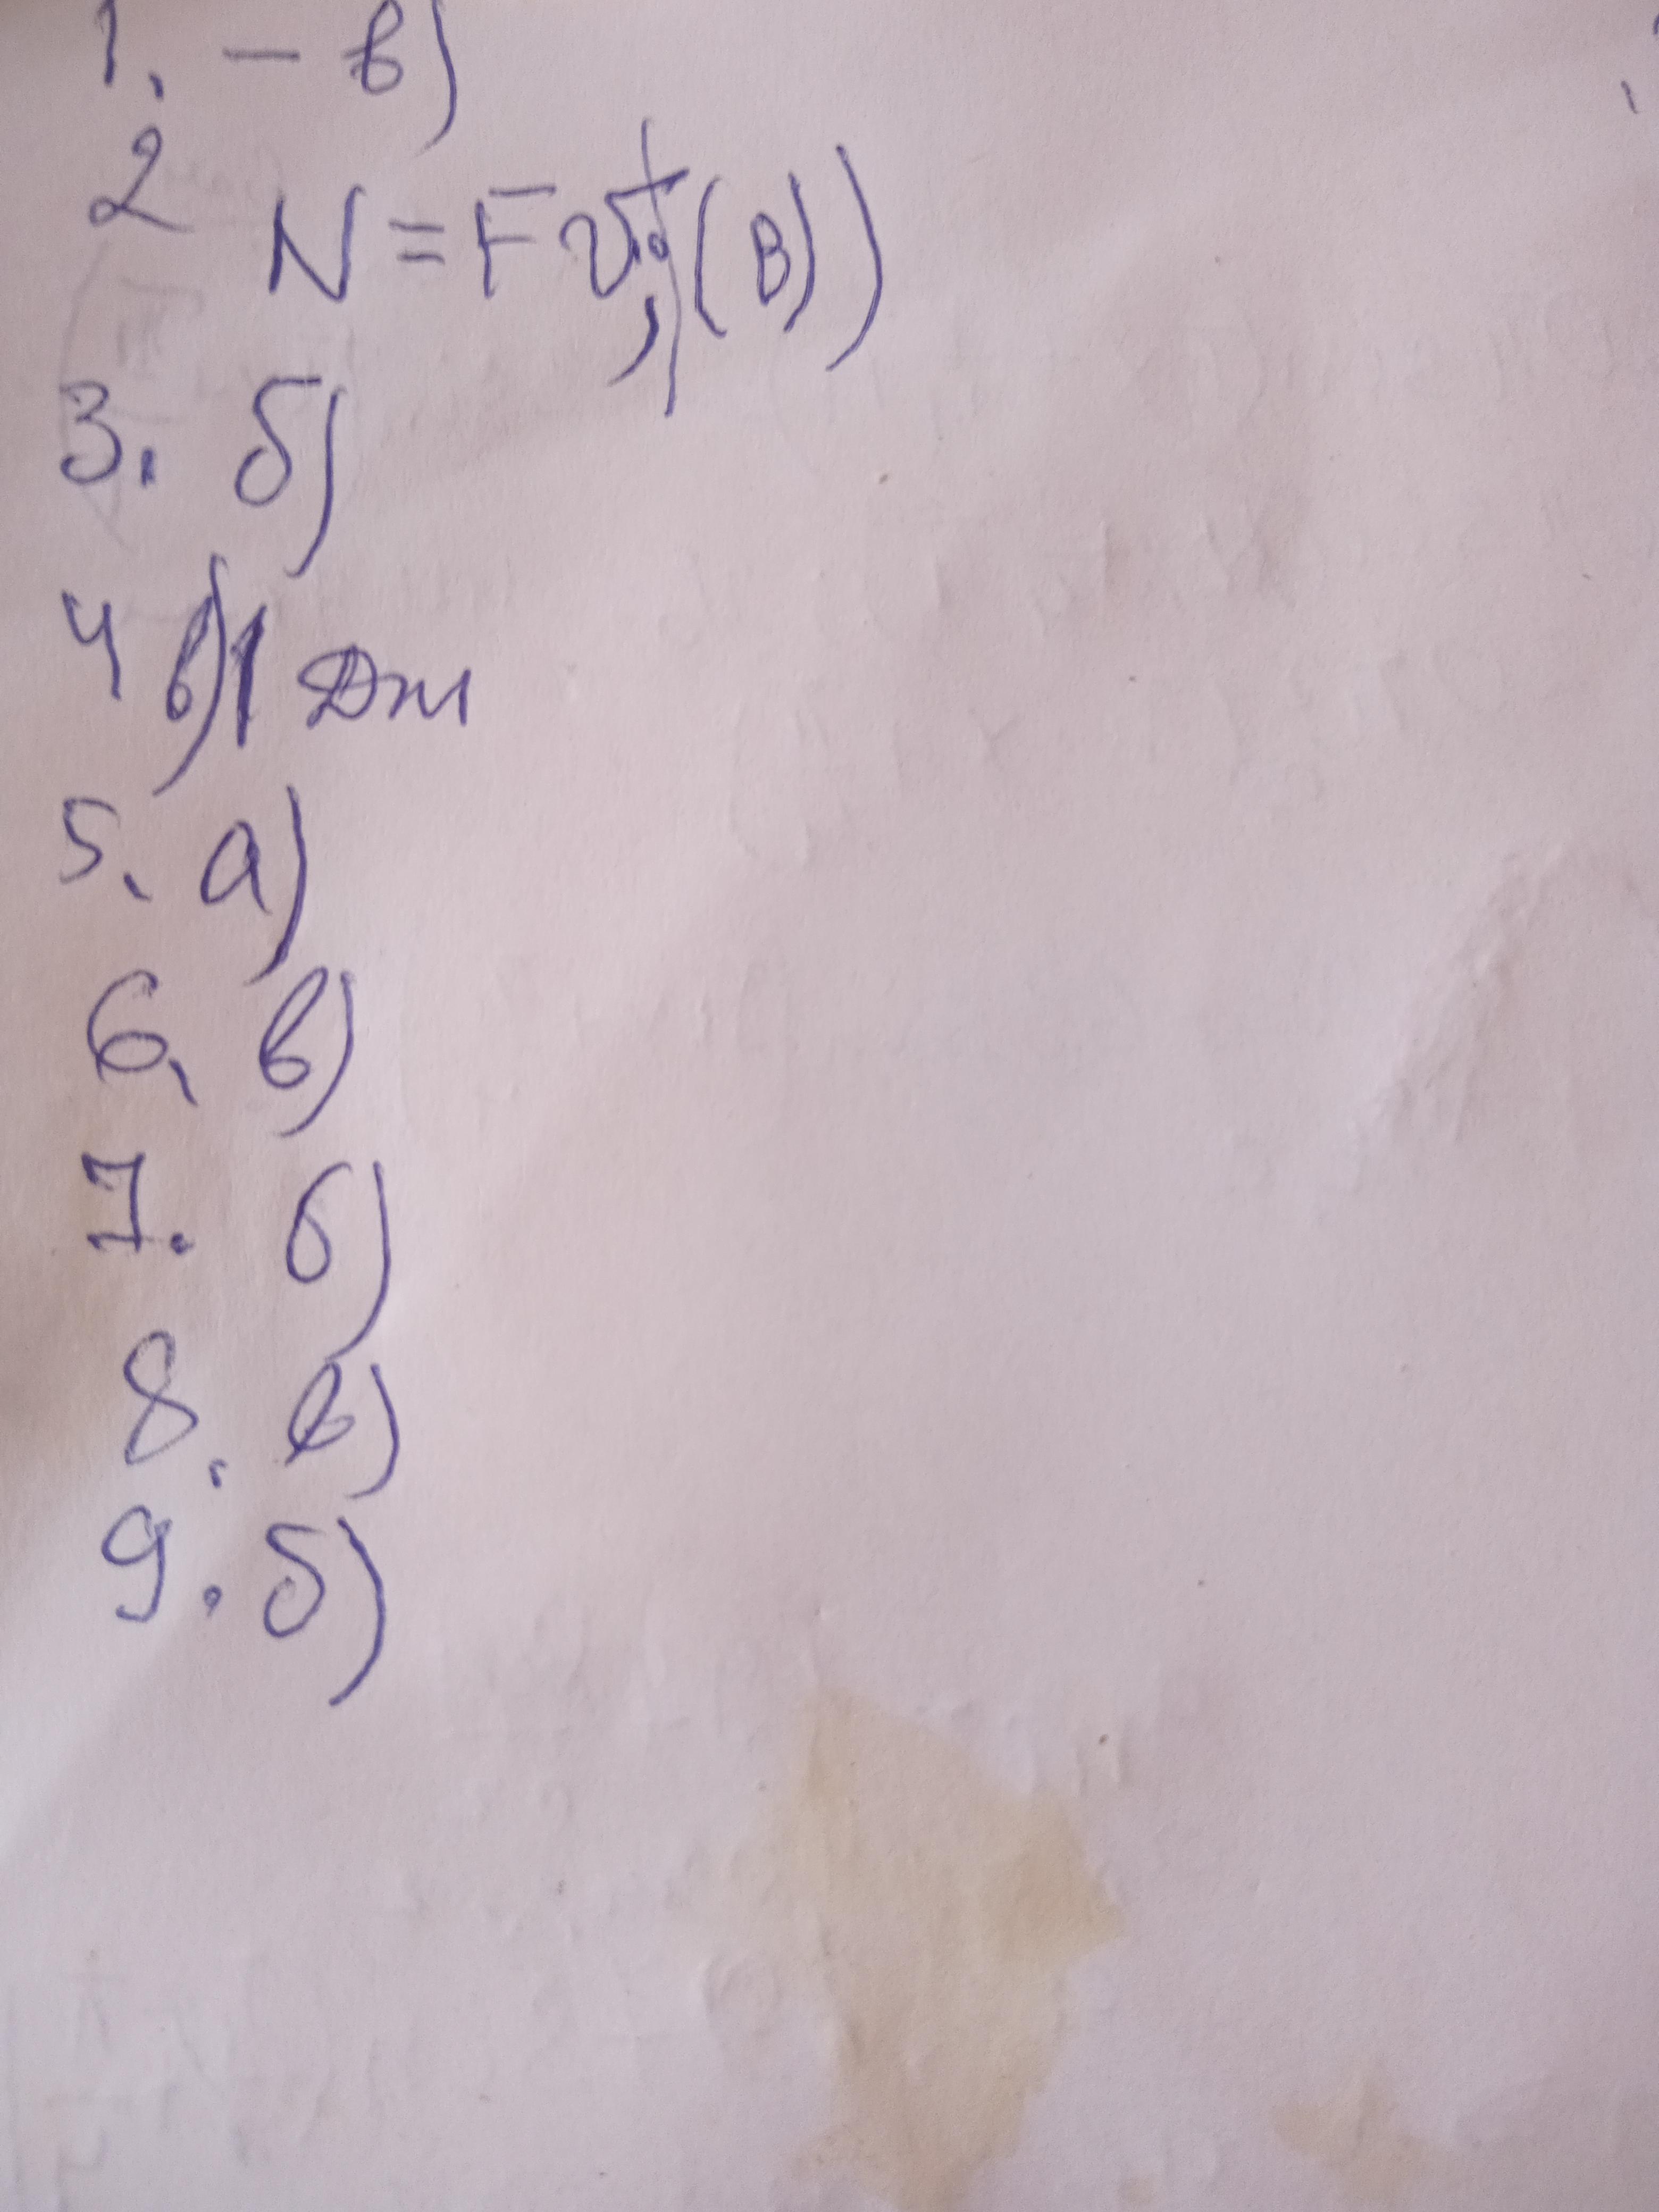 1. - в)
2 N = Fv; (В))
3. б)
4 в) 1 Дж
5. а)
6. в)
7. б)
8. в)
9. б)